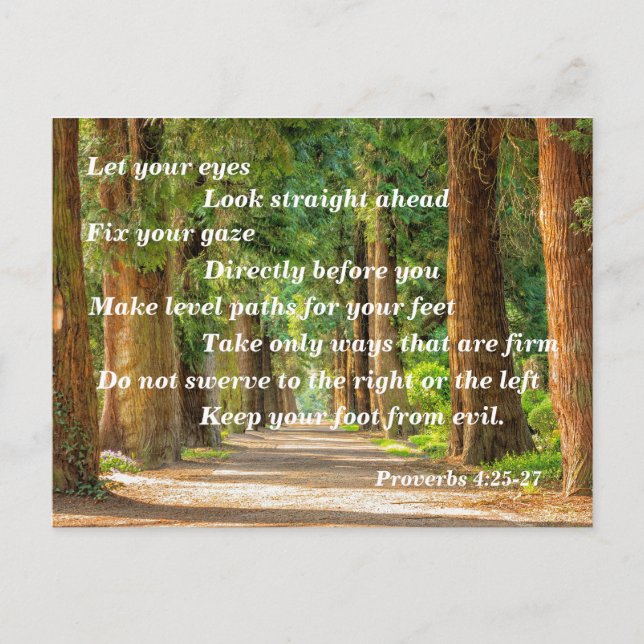 Let your eyes
Look straight ahead
Fix your gaze
Directly before you
Make level paths for your feet
Take only ways that are firm
Do not swerve to the right or the left
Keep your foot from evil.
Proverbs 4:25-27